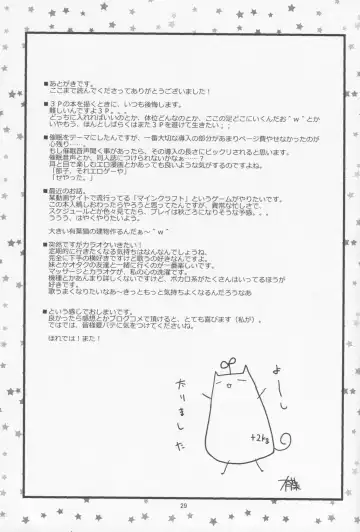 ■あとがきです。
ここまで読んでくださってありがとうございました！
■３Ｐの本を描くときに、いつも後悔します。
難しいんですよ３Ｐ。
どっちに入れればいいのかとか、体位などなんのとか、ここの足どこにいくんだお＾ｗ＾とか
いやもう、ほんとしばらくはまた３Ｐを避けて生きたい；；
■催眠をテーマにしたんですが、一番大切な導入の部分があまりページ費やせなかったのが
心残り……。
もし催眠音声聞く事があったら、その導入の長さにビックリされると思います。
催眠音声とか、同人誌につけられないかなぁ……？
耳と目で楽しめるエロ漫画とかあっても良いような気がするのですよね。
「即子、それエロゲーや」
「せやった。」
■最近のお話。
某動画サイトで流行ってる「マインクラフト」というゲームがやりたいです。
この本入稿しおわったらやろうと思ってたんですが、異常な忙しさで、
スケジュールとか色々見てたら、プレイは秋ごろになりそうな予感。。。
ううう、はやくやりたいのになあ。
大きい有葉猫の建物作るんだぁ～＾ｗ＾
■突然ですがカラオケいきたい！
定期的に行きたくなる気持ちは なんなんでしょうね。
完全に下手の横好きですけど歌うの好きなんですよ。
妹とかオタクの友達と一緒に行くのが一番楽しいです。
マッサージとカラオケが、私の心の洗濯です。
機種とかあんまり詳しくないですけど、ボカロ系がたくさんはいってるほうが
好きです。
歌うまくなりたいなあ～きっともっと気持ちよくなるんだろうなあ
■という感じでおしまいです。
良かったら感想とかブログコメで頂けると、とても喜びます（私が）。
ではでは、皆様夏バテに気をつけてくださいね。
ほれでは！また！
よーし
太りました
+2kg
29